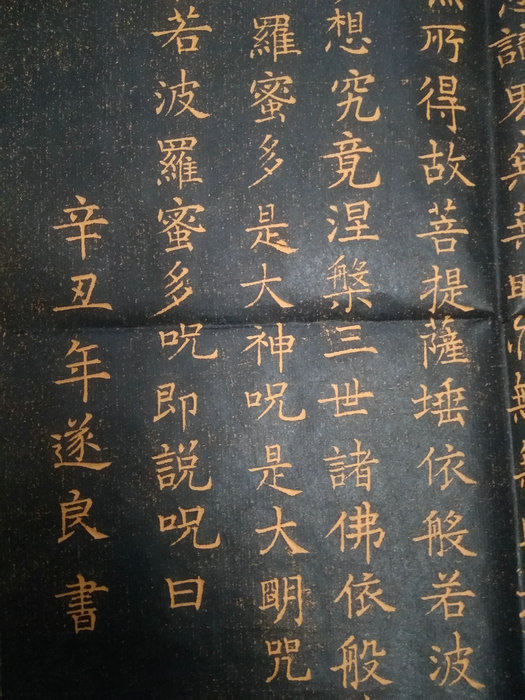 所得故菩提薩埵依般若波
想究竟涅槃三世諸佛依般
羅蜜多是大神呪是大明咒
若波羅蜜多呪即說呪曰
辛丑年遂良書